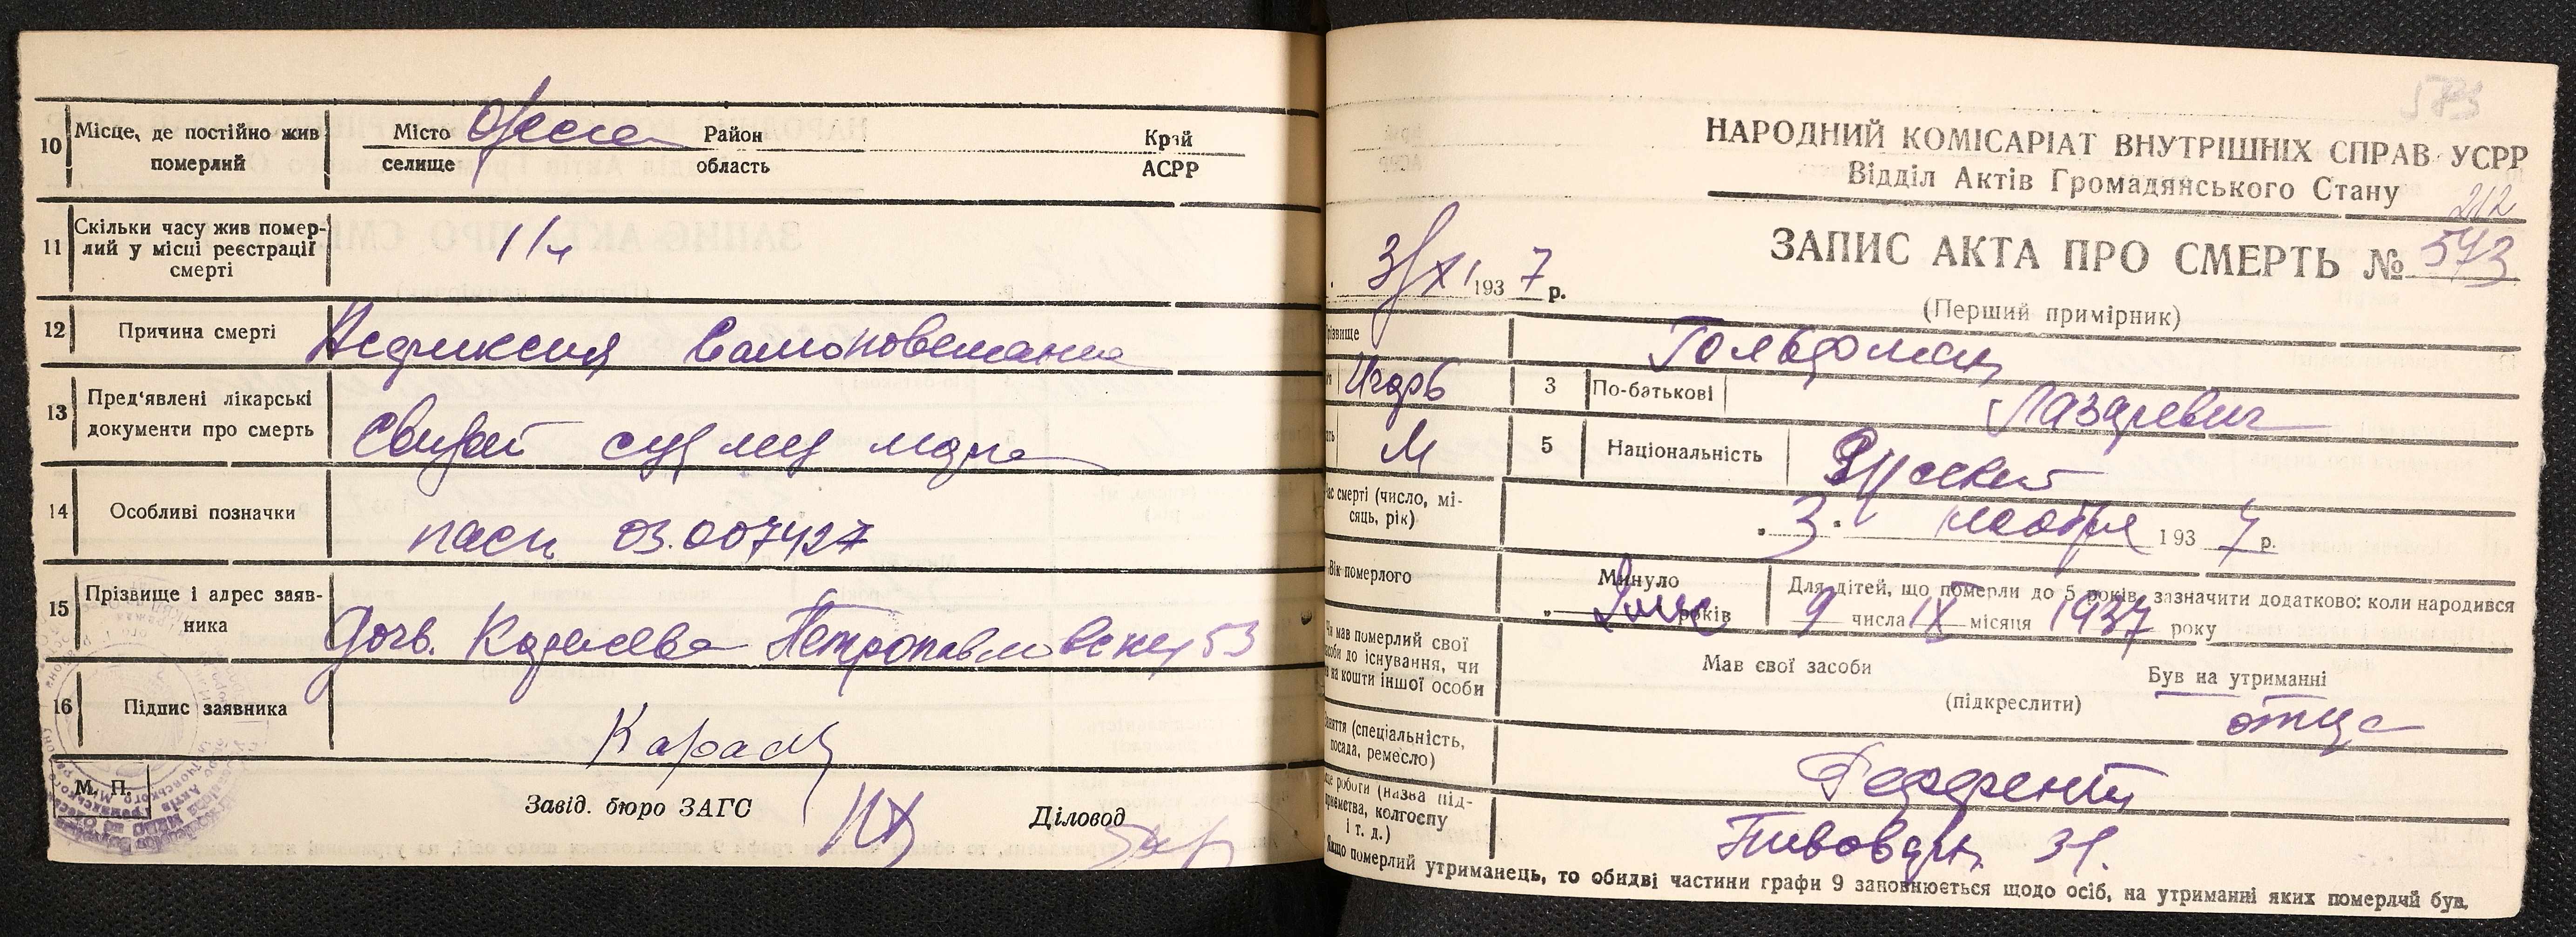 10 Місце, де постійно жив померлий
Місто Одесса Район Край
селище область АСРР
11 Скільки часу жив помер-
лий у місці реєстрації
смерті
12 Причина смерті Асфиксия Самоповешание
13 Пред'явлені лікарські
документи про смерть
суд мед
14 Особливі позначки
пасп 03.007427
15 Прізвище і адрес заяв-
ника
дочь. Петропавловская 53
16 Підпис заявника
М. П.
Завід. бюро ЗАГС Діловод
573
НАРОДНИЙ КОМІСАРІАТ ВНУТРІШНІХ СПРАВ УСРР
Відділ Актів Громадянського Стану
212
ЗАПИС АКТА ПРО СМЕРТЬ № 573
3/XI 1937 р.
(Перший примірник)
різвище
Игорь 3 По-батькові Лазаревич
М 5 Національність Русский
ас смерті (число, мі-
сяць, рік)
3 ноября 1937 р.
Вік померлого
Минуло 2 мес років
Для дітей, що померли до 5 років, зазначити додатково: коли народився
9 числа IX місяця 1937 року
Чи мав померлий свої
засоби до існування, чи
на кошти іншої особи
Мав свої засоби Був на утриманні
(підкреслити) отца
Заняття (спеціальність,
посада, ремесло)
Референт
це роботи (назва під-
приємства, колгоспу
і т. д.)
31.
Якщо померлий утриманець, то обидві частини графи 9 заповнюється щодо осіб, на утриманні яких померлий був.